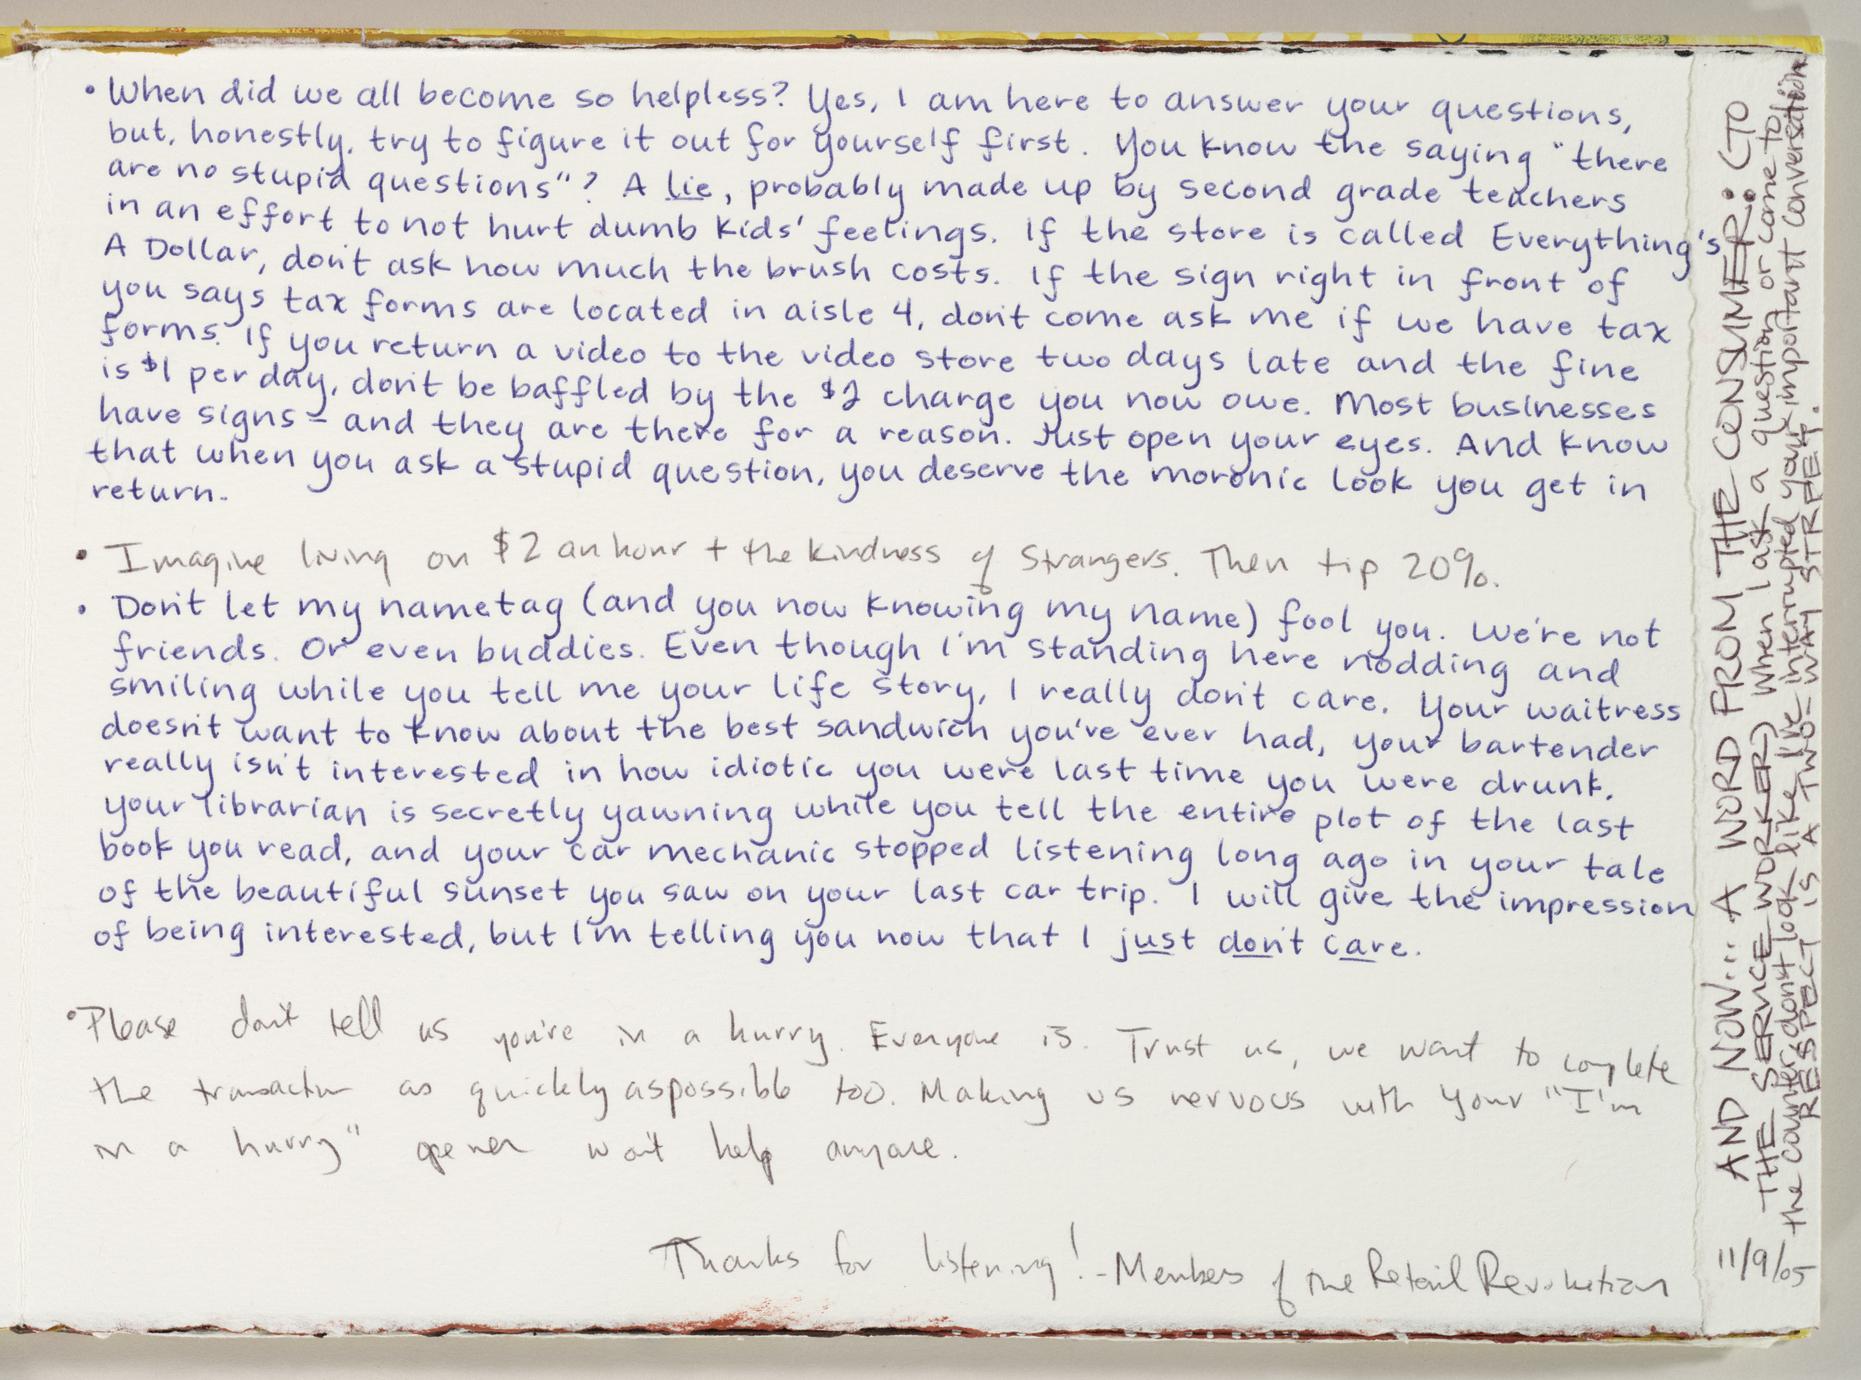 • When did we all become so helpless? Yes, I am here to answer your questions,
but, honestly, try to figure it out for yourself first. You know the saying "there
are no stupid questions"? A lie, probably made up by second grade teachers
in an effort to not hurt dumb kids' feelings. If the store is called Everything's
A Dollar, don't ask how much the brush costs. If the sign right in front of
you says tax forms are located in aisle 4, don't come ask me if we have tax
forms. If you return a video to the video store two days late and the fine
is $1 per day, don't be baffled by the $2 charge you now owe. Most businesses
have signs - and they are there for a reason. Just open your eyes. And know
that when you ask a stupid question, you deserve the moronic look you get in
return.
• Imagine living on $2 an hour + the kindness of strangers. Then tip 20%.
• Don't let my nametag (and you now knowing my name) fool you. We're not
friends. Or even buddies. Even though I'm standing here nodding and
smiling while you tell me your life story, I really don't care. Your waitress
doesn't want to know about the best sandwich you've ever had, your bartender
really isn't interested in how idiotic you were last time you were drunk,
your librarian is secretly yawning while you tell the entire plot of the last
book you read, and your car mechanic stopped listening long ago in your tale
of the beautiful sunset you saw on your last car trip. I will give the impression
of being interested, but I'm telling you now that I just don't care.
• Please don't tell us you're in a hurry. Everyone is. Trust us, we want to complete
the transaction as quickly as possible too. Making us nervous with your "I'm
in a hurry" opener won't help anyone.
Thanks for listening! - Members of the Retail Revolution
AND NOW... A WORD FROM THE CONSUMER: (TO
THE SERVICE WORKER) When I ask a question or come to
the counter don't look like I've interrupted your important conversation
RESPECT IS A TWO-WAY STREET.
11/9/05